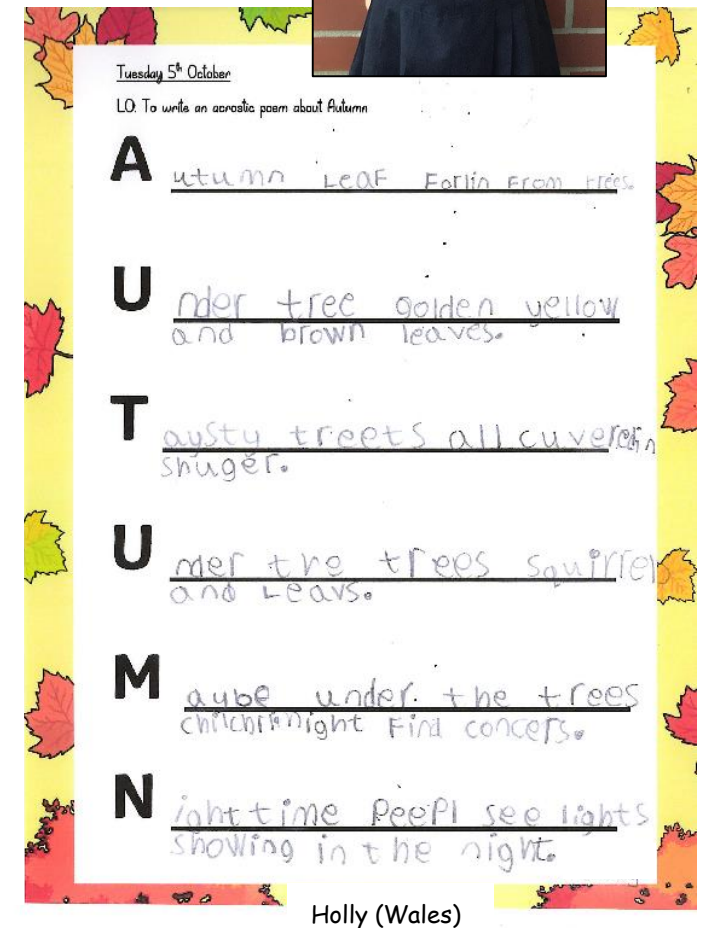 Tuesday 5th October
LO: To write an acrostic poem about Autumn
Autumn Leaf Forlin From trees.
Under tree golden yellow
and brown leaves.
Taysty treets all cuverd in
shuger.
Uner the trees squirrels
and Leavs.
Maybe under the trees
might Find concers.
Nighttime PeePl see lights
showing in the night.
Holly (Wales)